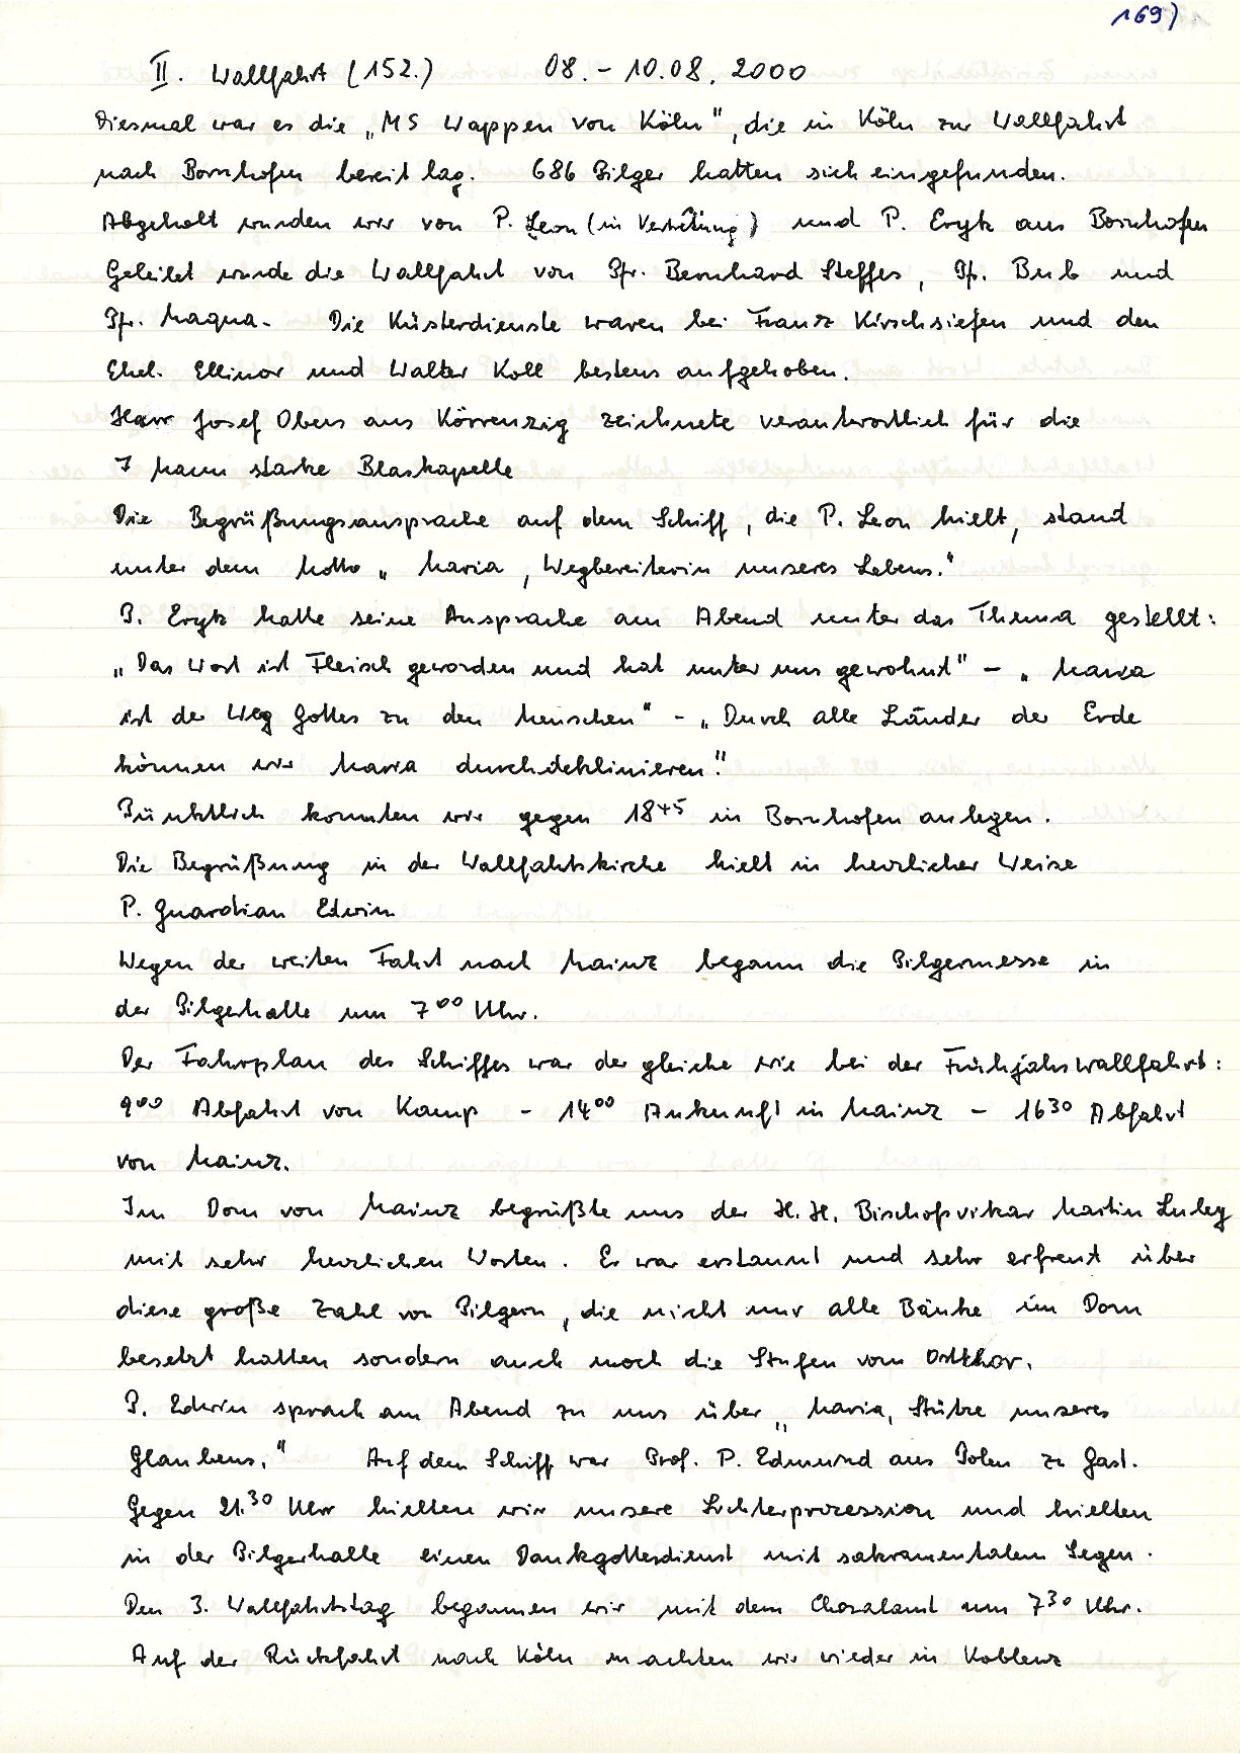 169)
II. Wallfahrt (152.) 08. - 10.08. 2000
Diesmal war es die „MS Wappen von Köln", die in Köln zur Wallfahrt
nach Bornhofen bereit lag. 686 Pilger hatten sich eingefunden.
Abgeholt wurden wir von P. Leon (in Vertretung) und P. Eryk aus Bornhofen
Geleitet wurde die Wallfahrt von Pfr. Bernhard Steffes, Pf. Bub und
Pfr. Maqua. Die Küsterdienste waren bei Franz Kirschsiefen und den
Ehel. Ellinor und Walter Koll bestens aufgehoben.
Herr Josef Obers aus Körrenzig zeichnete verantwortlich für die
7 Mann starke Blaskapelle
Die Begrüßungsansprache auf dem Schiff, die P. Leon hielt, stand
unter dem Motto „Maria, Wegbereiterin unseres Lebens."
P. Eryk hatte seine Ansprache am Abend unter das Thema gestellt:
„Das Wort ist Fleisch geworden und hat unter uns gewohnt" - „Maria
ist der Weg Gottes zu den Menschen" - „Durch alle Länder der Erde
können wir Maria durchdeklinieren."
Pünktlich konnten wir gegen 18⁴⁵ in Bornhofen anlegen.
Die Begrüßung in der Wallfahrtskirche hielt in herzlicher Weise
P. Guardian Edwin
Wegen der weiten Fahrt nach Mainz begann die Pilgermesse in
der Pilgerhalle um 7⁰⁰ Uhr.
Der Fahrplan des Schiffes war der gleiche wie bei der Frühjahrswallfahrt:
9⁰⁰ Abfahrt von Kamp - 14⁰⁰ Ankunft in Mainz - 16³⁰ Abfahrt
von Mainz.
Im Dom von Mainz begrüßte uns der H.H. Bischofsvikar Martin Luley
mit sehr herzlichen Worten. Er war erstaunt und sehr erfreut über
diese große Zahl von Pilgern, die nicht nur alle Bänke im Dom
besetzt hatten sondern auch noch die Stufen vom Ostchor.
P. Edwin sprach am Abend zu uns über „Maria, Stütze unseres
Glaubens." Auf dem Schiff war Prof. P. Edmund aus Polen zu Gast.
Gegen 21.³⁰ Uhr hielten wir unsere Lichterprozession und hielten
in der Pilgerhalle einen Dankgottesdienst mit sakramentalem Segen.
Den 3. Wallfahrtstag begannen wir mit dem Choralamt um 7³⁰ Uhr.
Auf der Rückfahrt nach Köln machten wir wieder in Koblenz